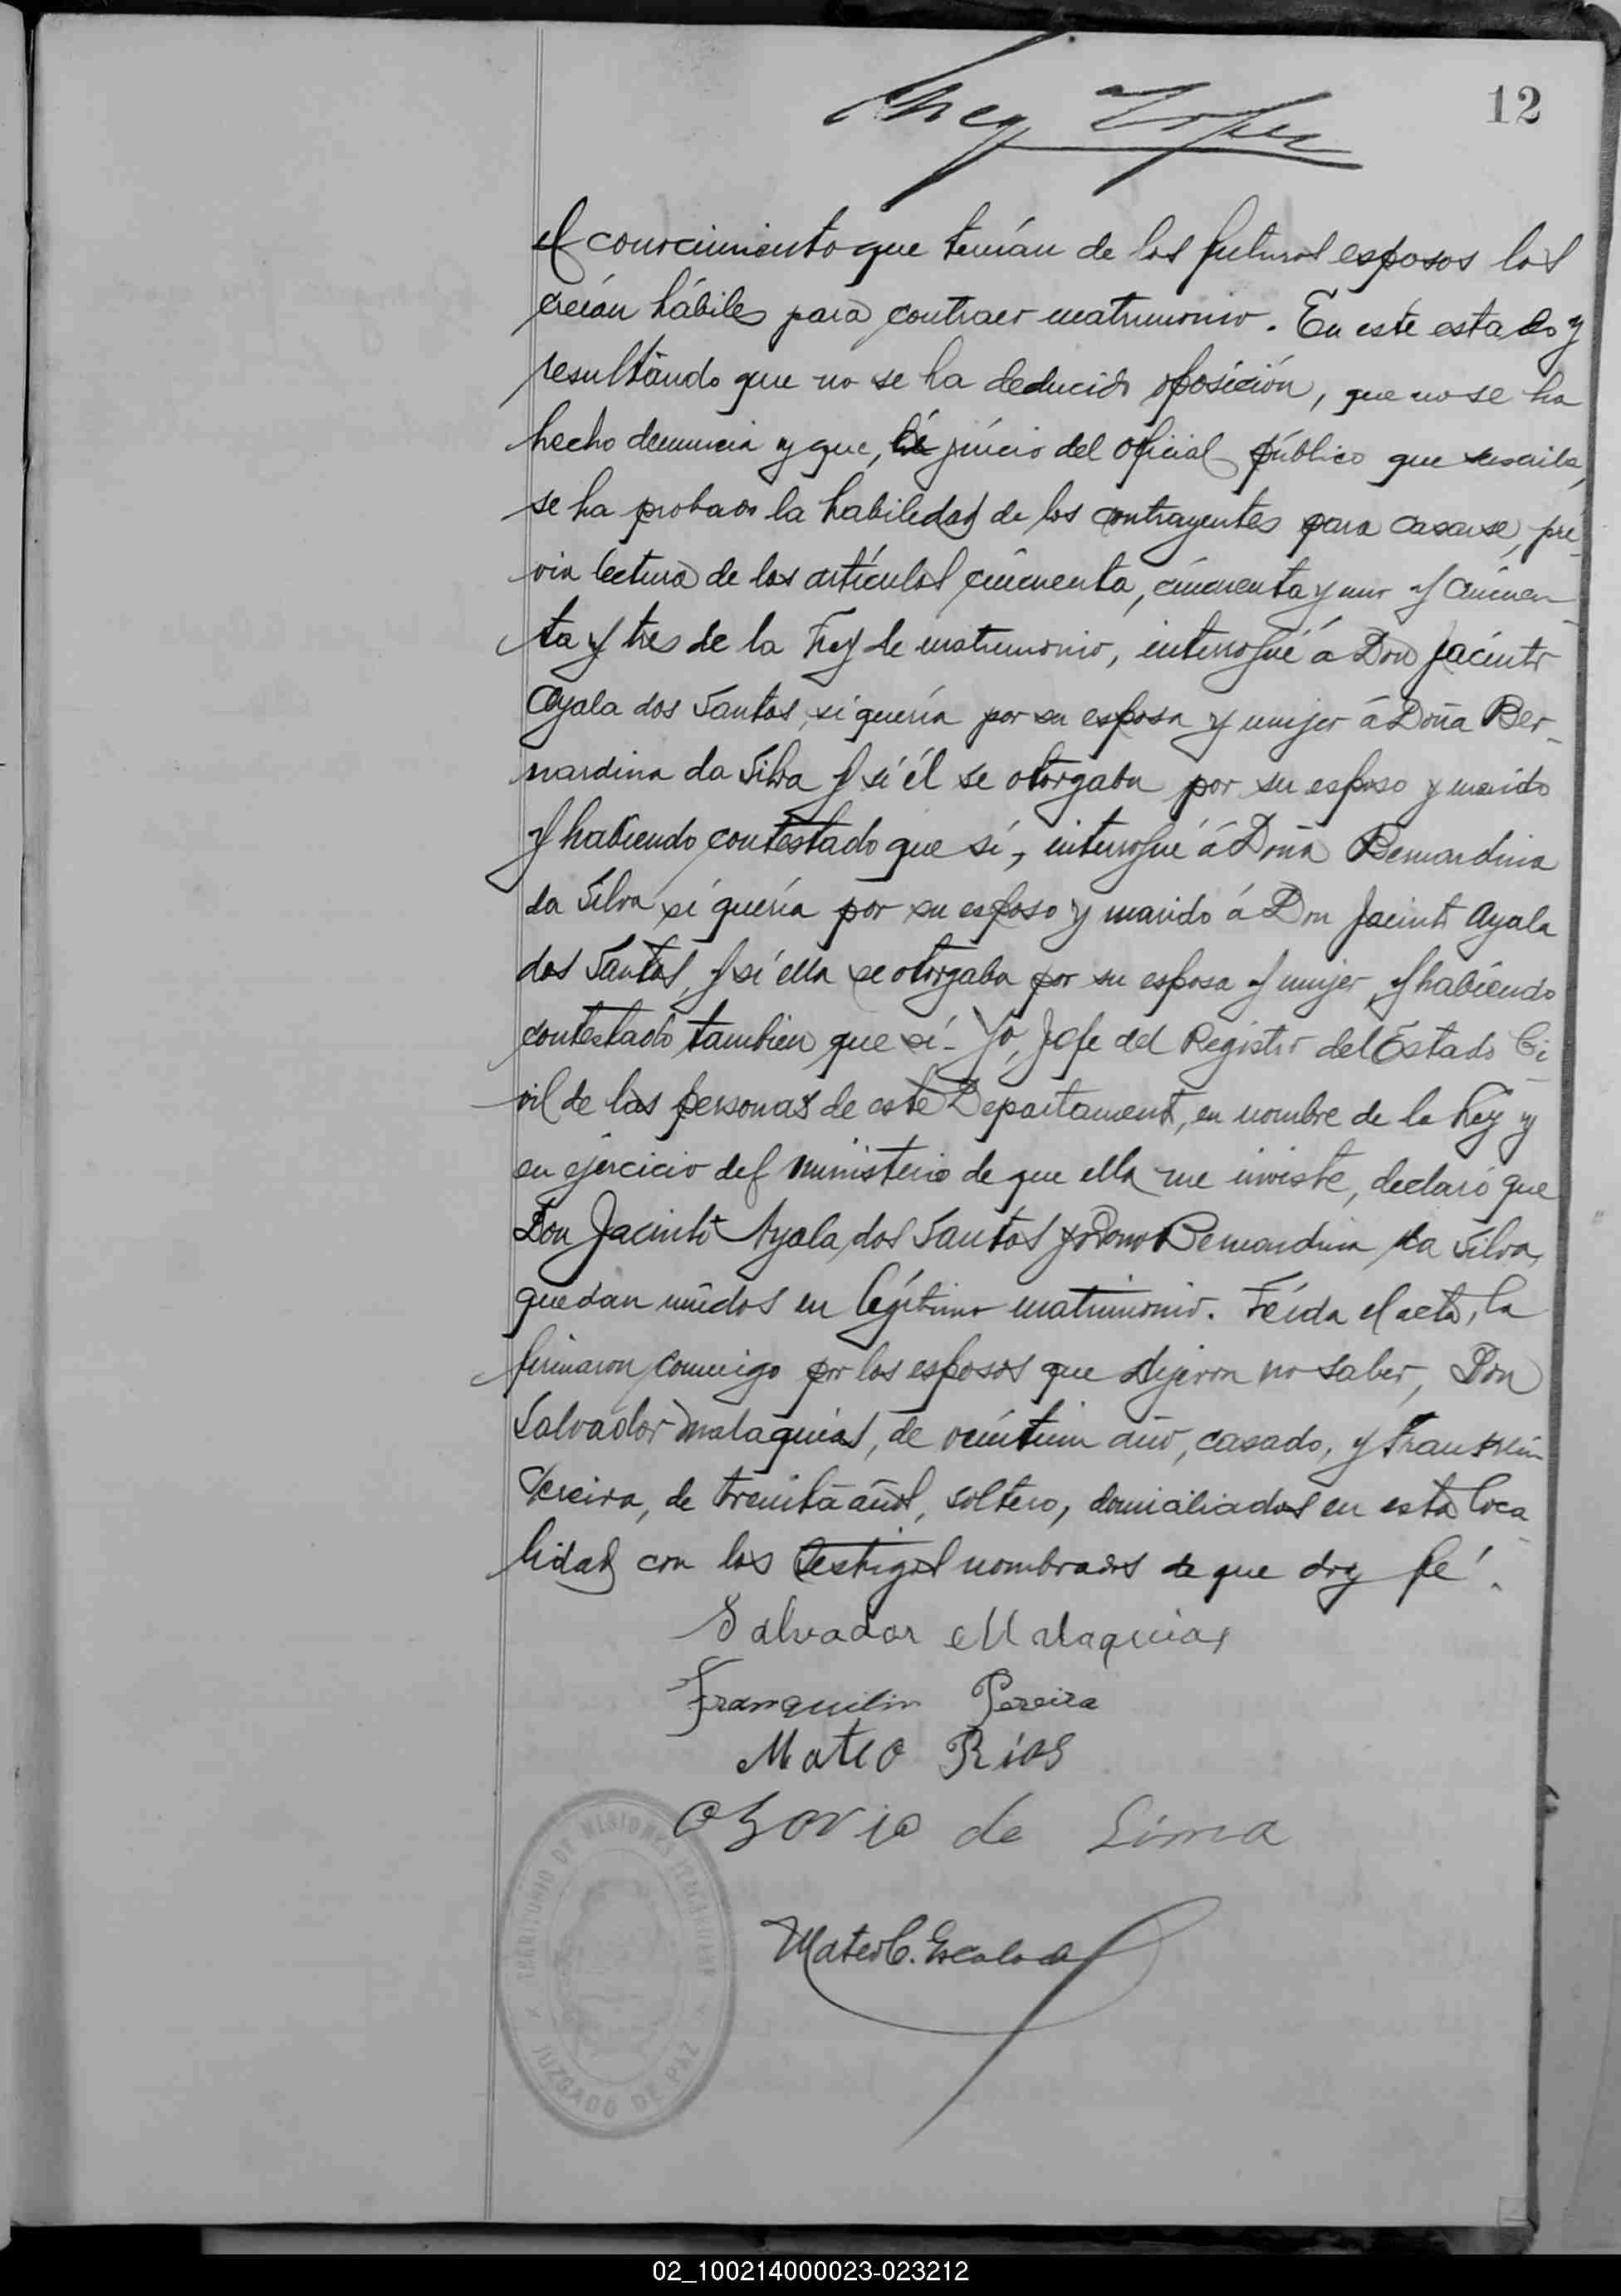 12
el conocimiento que tenían de los futuros esposos los
creían hábiles para contraer matrimonio. En este estado y
resultando que no se ha deducido oposición, que no se ha
hecho denuncia y que, á juicio del oficial público que suscribe,
se ha probado la habilidad de los contrayentes para casarse, pré-
via lectura de los artículos cincuenta, cincuenta y uno y cincuen-
ta y tres de la Ley de matrimonio, interrogué á Don Jacinto
Ayala dos Santos, si quería por su esposa y mujer á Doña Ber-
nardina da Silva y si él se otorgaba por su esposo y marido
y habiendo contestado que sí, interrogué á Doña Bernardina
da Silva si quería por su esposo y marido á Don Jacinto Ayala
dos Santos, y si ella se otorgaba por su esposa y mujer, y habiendo
contestado tambien que sí - Yo, Jefe del Registro del Estado Ci-
vil de las personas de este Departamento, en nombre de la Ley y
en ejercicio del ministerio de que ella me inviste, declaro que
Don Jacinto Ayala dos Santos y Doña Bernardina da Silva,
quedan unidos en legítimo matrimonio. Leída el acta, la
firmaron conmigo por los esposos que dijeron no saber, Don
Salvador Malaquias, de veintiun año, casado, y Franklin
Pereira, de treinta años, soltero, domiciliados en esta loca-
lidad con los testigos nombrados de que doy fé.
Salvador Malaquias
Franquilin Pereira
Mateo Rios
Osorio de Lima
Mateo C. Escalada
TERRITORIO DE MISIONES
JUZGADO DE PAZ
02_100214000023-023212